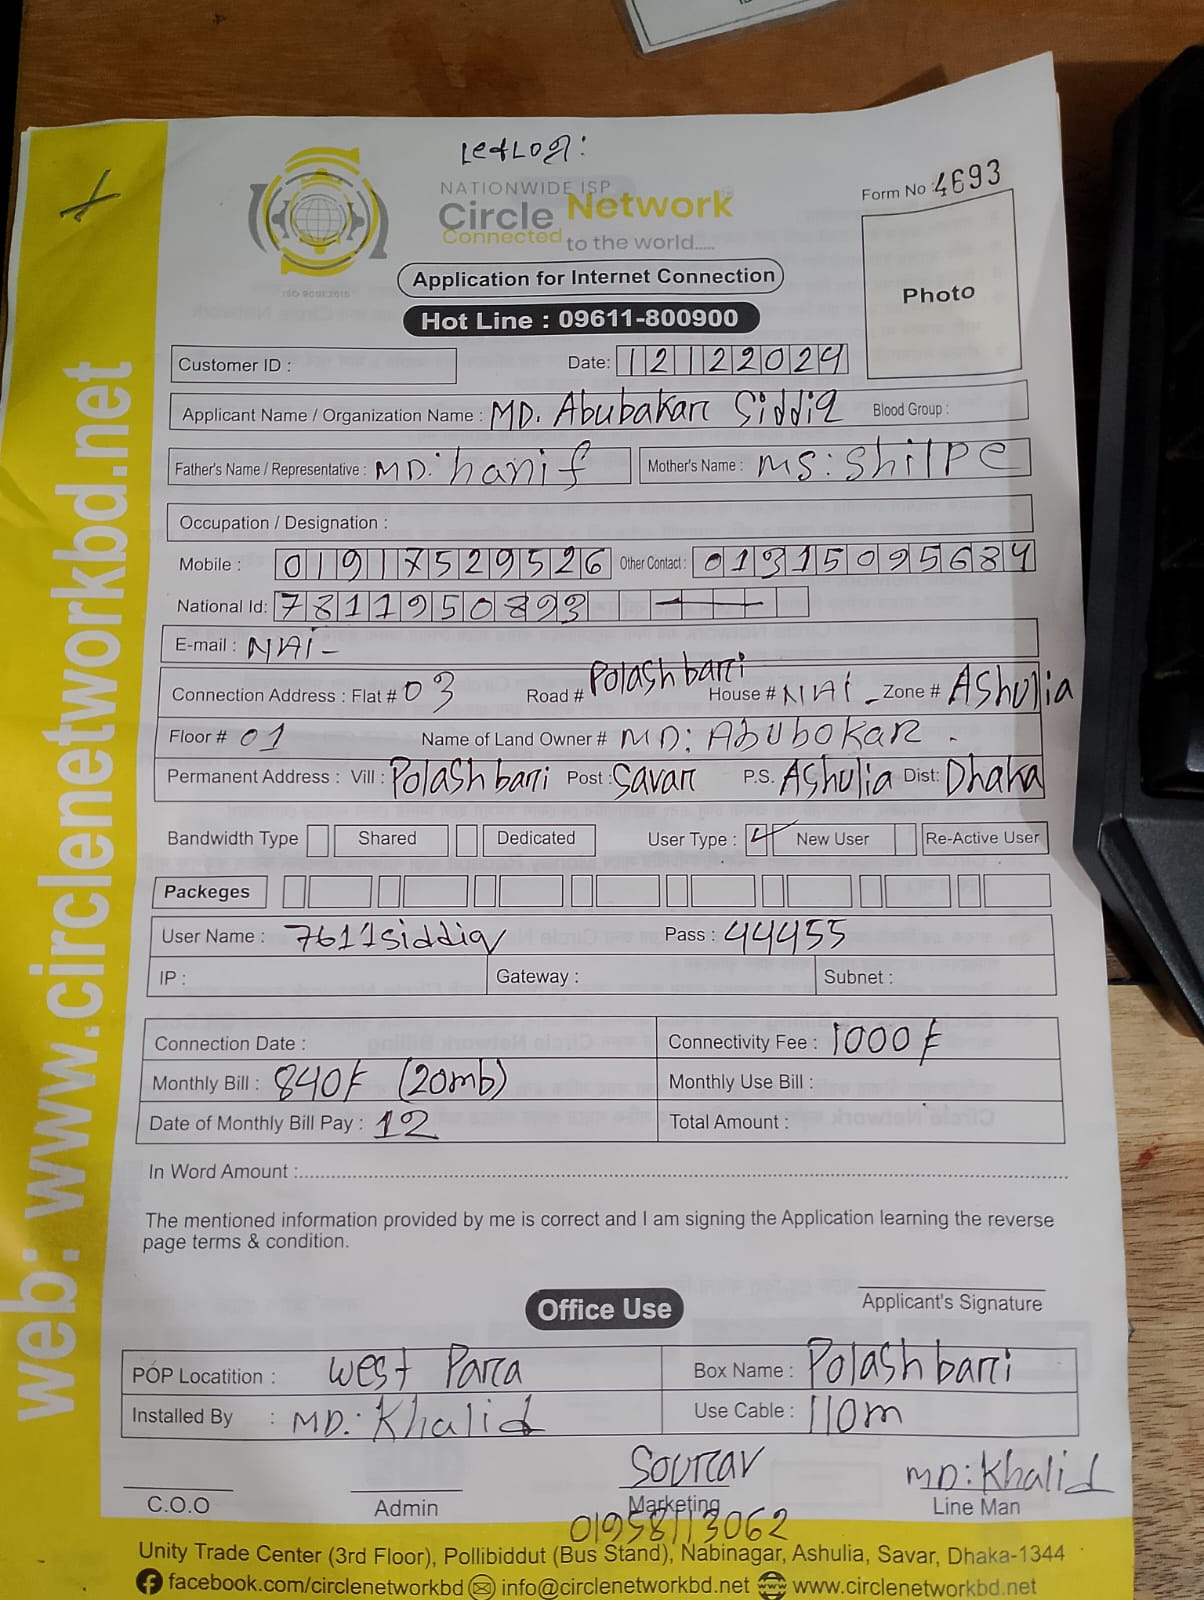 NATIONWIDE ISP
Circle Network
Connected to the world.....
ISO 9001:2015
Form No : 4693
Application for Internet Connection
Photo
Hot Line : 09611-800900
Customer ID :
Date: 12122024
Applicant Name / Organization Name : MD. Abubakar Siddiq Blood Group :
Father's Name / Representative : MD: hanif Mother's Name : MS: Shilpe
Occupation / Designation :
Mobile : 01917529526 Other Contact : 01315095684
National Id: 7811950893
E-mail : NAi -
Connection Address : Flat # 03 Road # Polash bari House # NAi - Zone # Ashulia
Floor # 01 Name of Land Owner # MD: Abubokar .
Permanent Address : Vill : Polash bari Post : Savar P.S. Ashulia Dist: Dhaka
Bandwidth Type Shared Dedicated User Type : New User Re-Active User
Packeges
User Name : 7611siddiq Pass : 44455
IP : Gateway : Subnet :
Connection Date : Connectivity Fee : 1000/=
Monthly Bill : 840/= (20mb) Monthly Use Bill :
Date of Monthly Bill Pay : 12 Total Amount :
In Word Amount :
The mentioned information provided by me is correct and I am signing the Application learning the reverse
page terms & condition.
Applicant's Signature
Office Use
POP Locatition : West Para Box Name : Polash bari
Installed By : MD: Khalid Use Cable : 110m
Sourav MD: Khalid
C.O.O Admin Marketing Line Man
01958113062
Unity Trade Center (3rd Floor), Pollibiddut (Bus Stand), Nabinagar, Ashulia, Savar, Dhaka-1344
facebook.com/circlenetworkbd info@circlenetworkbd.net www.circlenetworkbd.net
web: www.circlenetworkbd.net